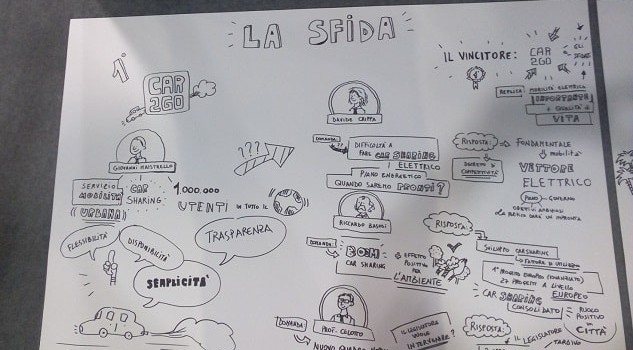 LA SFIDA
1
CAR
2GO
GIOVANNI MAESTRELLO
SERVIZIO
MOBILITÀ
URBANA
CAR
SHARING
1.000.000
UTENTI IN TUTTO IL
???
FLESSIBILITÀ
DISPONIBILITÀ
SEMPLICITÀ
TRASPARENZA
DAVIDE CRIPPA
DOMANDA:
DIFFICOLTÀ A
FARE CAR SHARING
ELETTRICO
PIANO ENERGETICO
QUANDO SAREMO PRONTI?
RISPOSTA:
FONDAMENTALE
mobilità
VETTORE
ELETTRICO
PIANO
GOVERNO
RICCARDO BASOSI
DOMANDA:
BOOM
CAR SHARING
EFFETTO
POSITIVO
PER
L'AMBIENTE
RISPOSTA:
SVILUPPO CARSHARING
1° PROGETTO EUROPEO
27 PROGETTI A LIVELLO
EUROPEO
CAR SHARING
CONSOLIDATO
RUOLO
POSITIVO
IN
CITTÀ
PROF. CELOTTO
DOMANDA
IL LEGISLATORE
VUOLE
INTERVENIRE?
RISPOSTA:
IL LEGISLATORE
IL VINCITORE:
CAR
2GO
REPLICA
MOBILITÀ ELETTRICA
IMPORTANTE
QUALITÀ
VITA